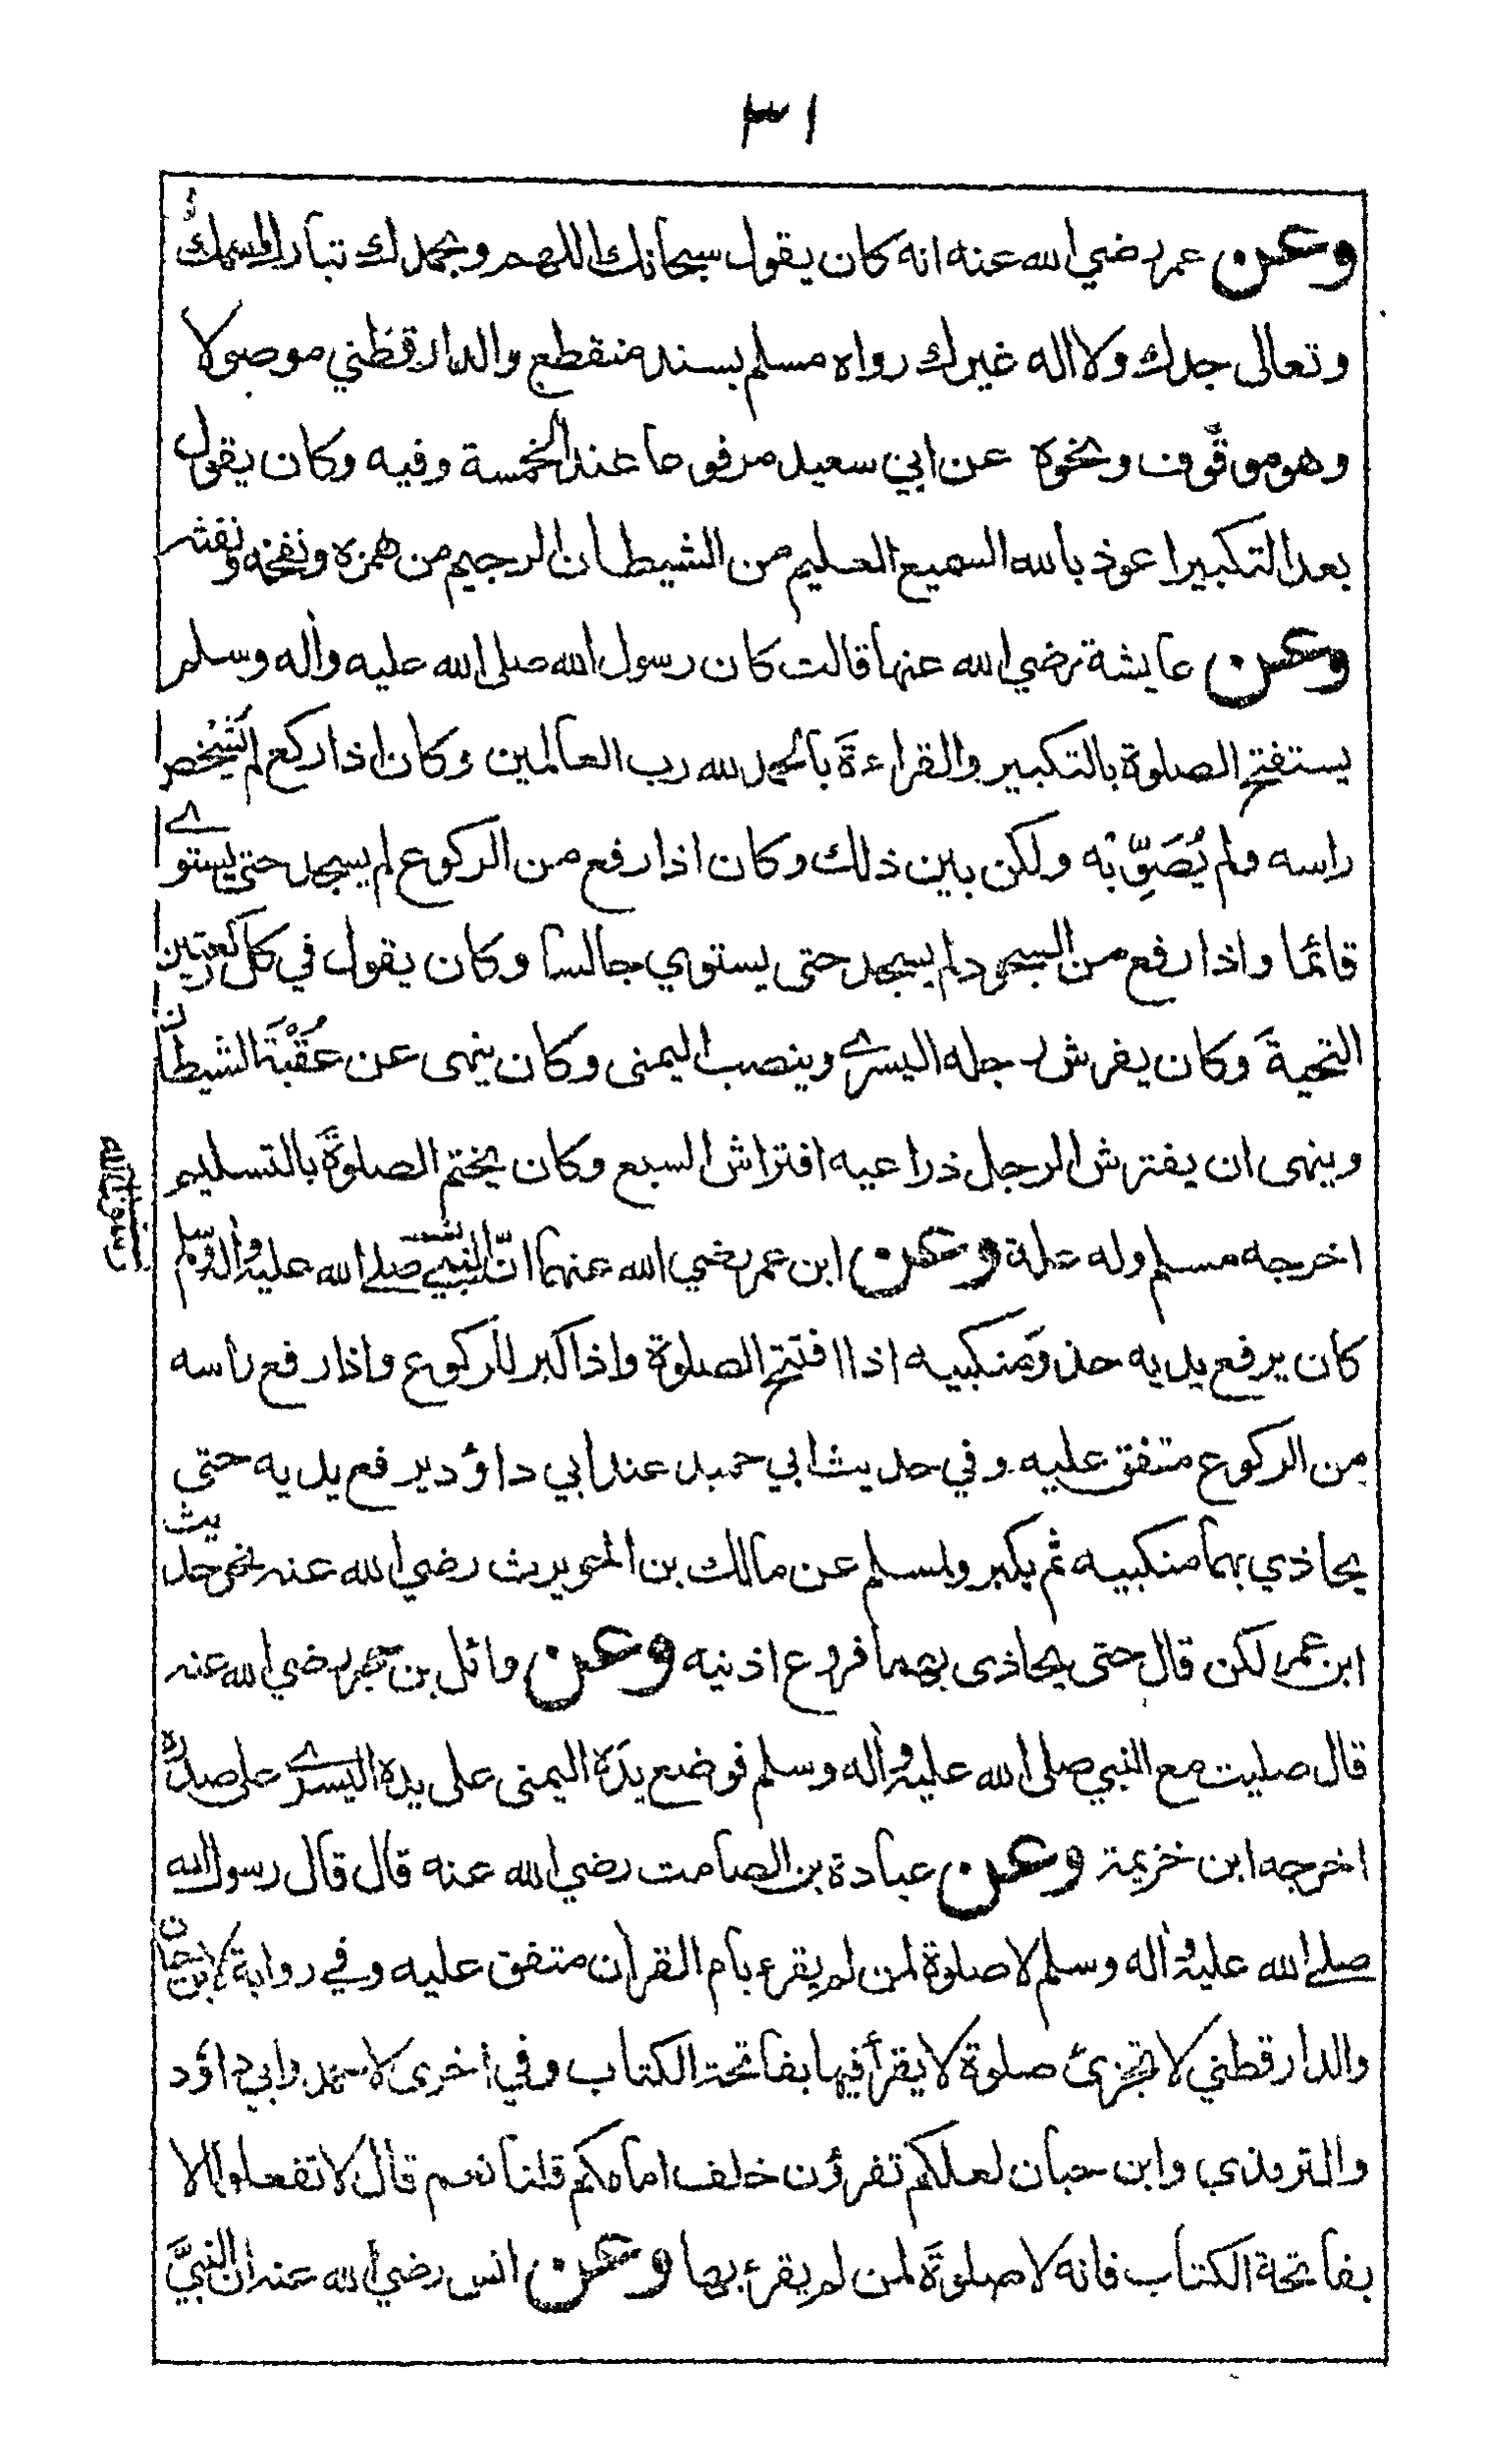 ٣١
وعن عمر رضي الله عنه انه كان يقول سبحانك اللهم وبحمدك تبارك اسمك
وتعالى جدك ولا اله غيرك رواه مسلم بسند منقطع والدارقطني موصولا
وهو موقوف ونحوه عن ابي سعيد مرفوعا عند الخمسة وفيه وكان يقول
بعد التكبير اعوذ بالله السميع العليم من الشيطان الرجيم من همزه ونفخه ونفثه
وعن عايشة رضي الله عنها قالت كان رسول الله صلى الله عليه واله وسلم
يستفتح الصلوة بالتكبير والقراءةَ بالحمد لله رب العالمين وكان اذا ركع لم يُشْخص
راسه ولم يُصَوِّبْه ولكن بين ذلك وكان اذا رفع من الركوع لم يسجد حتى يستوے
قائما واذا رفع من السجود لم يسجد حتى يستوي جالسا وكان يقول في كل ركعتين
التحيةَ وكان يفرش رجله اليسرے وينصب اليمنى وكان ينهى عن عُقْبَة الشيطان
وينهى ان يفترش الرجل ذراعيه افتراش السبع وكان يختم الصلوةَ بالتسليم
اخرجه مسلم وله علة وعن ابن عمر رضي الله عنهما انّ النبيے صلے الله عليه واله وسلم
رسول الله
كان يرفع يديه حذوَ منكبيه اذا افتتح الصلوة واذا كبر للركوع واذا رفع راسه
من الركوع متفق عليه وفي حديث ابي حميد عند ابي داؤد يرفع يديه حتى
يحاذي بهما منكبيه ثم يكبر ولمسلم عن مالك بن الحويرث رضي الله عنه نحو حديث
ابن عمر لكن قال حتى يحاذى بهما فروع اذنيه وعن وائل بن حجر رضي الله عنه
قال صليت مع النبي صلى الله عليه واله وسلم فوضع يدَه اليمنى على يده اليسرے على صدره
اخرجه ابن خزيمة وعن عبادة بن الصامت رضي الله عنه قال قال رسول الله
صلے الله عليه واله وسلم لا صلوة لمن لم يقرء بام القرآن متفق عليه وفے رواية لابن حبان
والدارقطني لا تجزئ صلوة لا يقرأ فيها بفاتحة الكتاب وفي اخرى لاحمد وابي داؤد
والترمذي وابن حبان لعلكم تقرؤن خلف امامكم قلنا نعم قال لا تفعلوا الا
بفاتحة الكتاب فانه لا صلوةَ لمن لم يقرء بها وعن انس رضي الله عنه ان النبيَّ